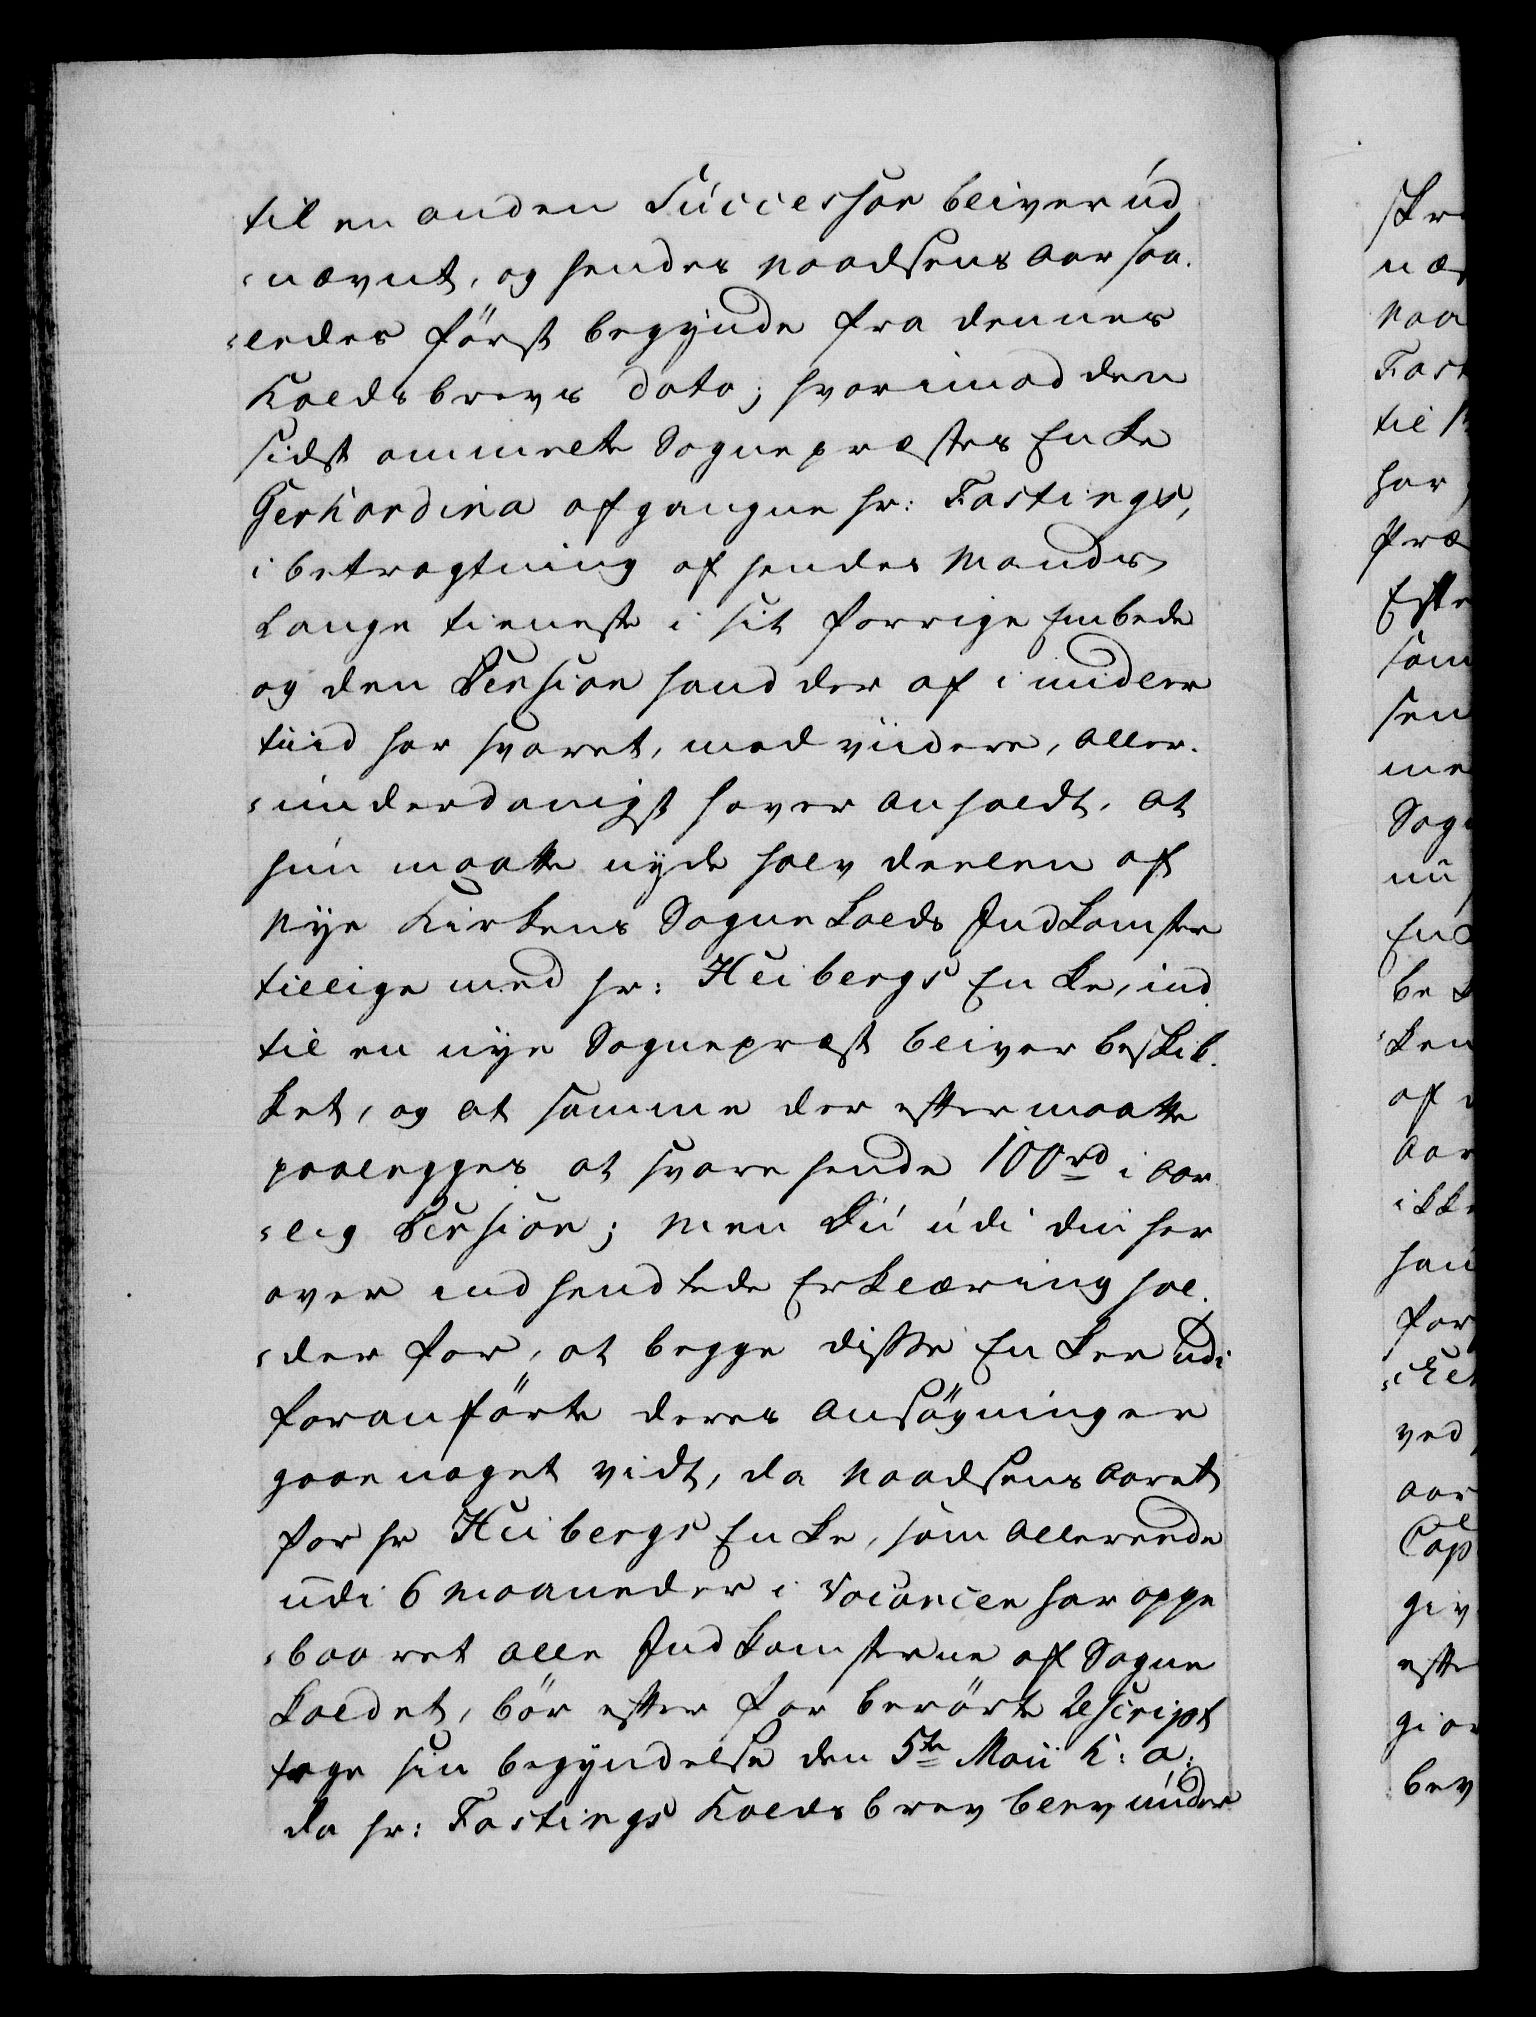 til en anden Successor bliver ud
-nævnt, og hendes Naadsens Aar saa-
-ledes först begynde fra dennes
Kaldsbrevs dato; hvorimod den
sidst ommelte Sognepræstes Enke
Gerhardina afgangne Hr: Fastings,
i betragtning af hendes Mands
lange tieneste i sit forrige Embede
og den Pension hand der af imidler
tiid har svaret, med viidere, aller-
-underdanigst haver anholdt, at
hun maatte nyde halv deelen af
Nye Kirkens Sognekalds Indkomster
tillige med Hr: Heibergs Enke, ind
til en nye Sognepræst bliver beskik-
ket, og at samme der efter maatte
paalegges at svare hende 100 rd i aar
-lig Pension; Men Du udi din her
over indsendtede Erklæring hol-
-der for, at begge disse Enker udi
foranförte deres Ansögninger
gaae noget vidt, da Naadsens Aaret
for Hr Heibergs Enke, som allereede
udi 6 Maaneder i Vacancen har oppe
-baaret alle Indkomsterne af Sogne
kaldet, bör efter for berörte Rescript
tage sin begyndelse den 5te Maii h: a:
da Hr: Fastings Kaldsbrev blev under